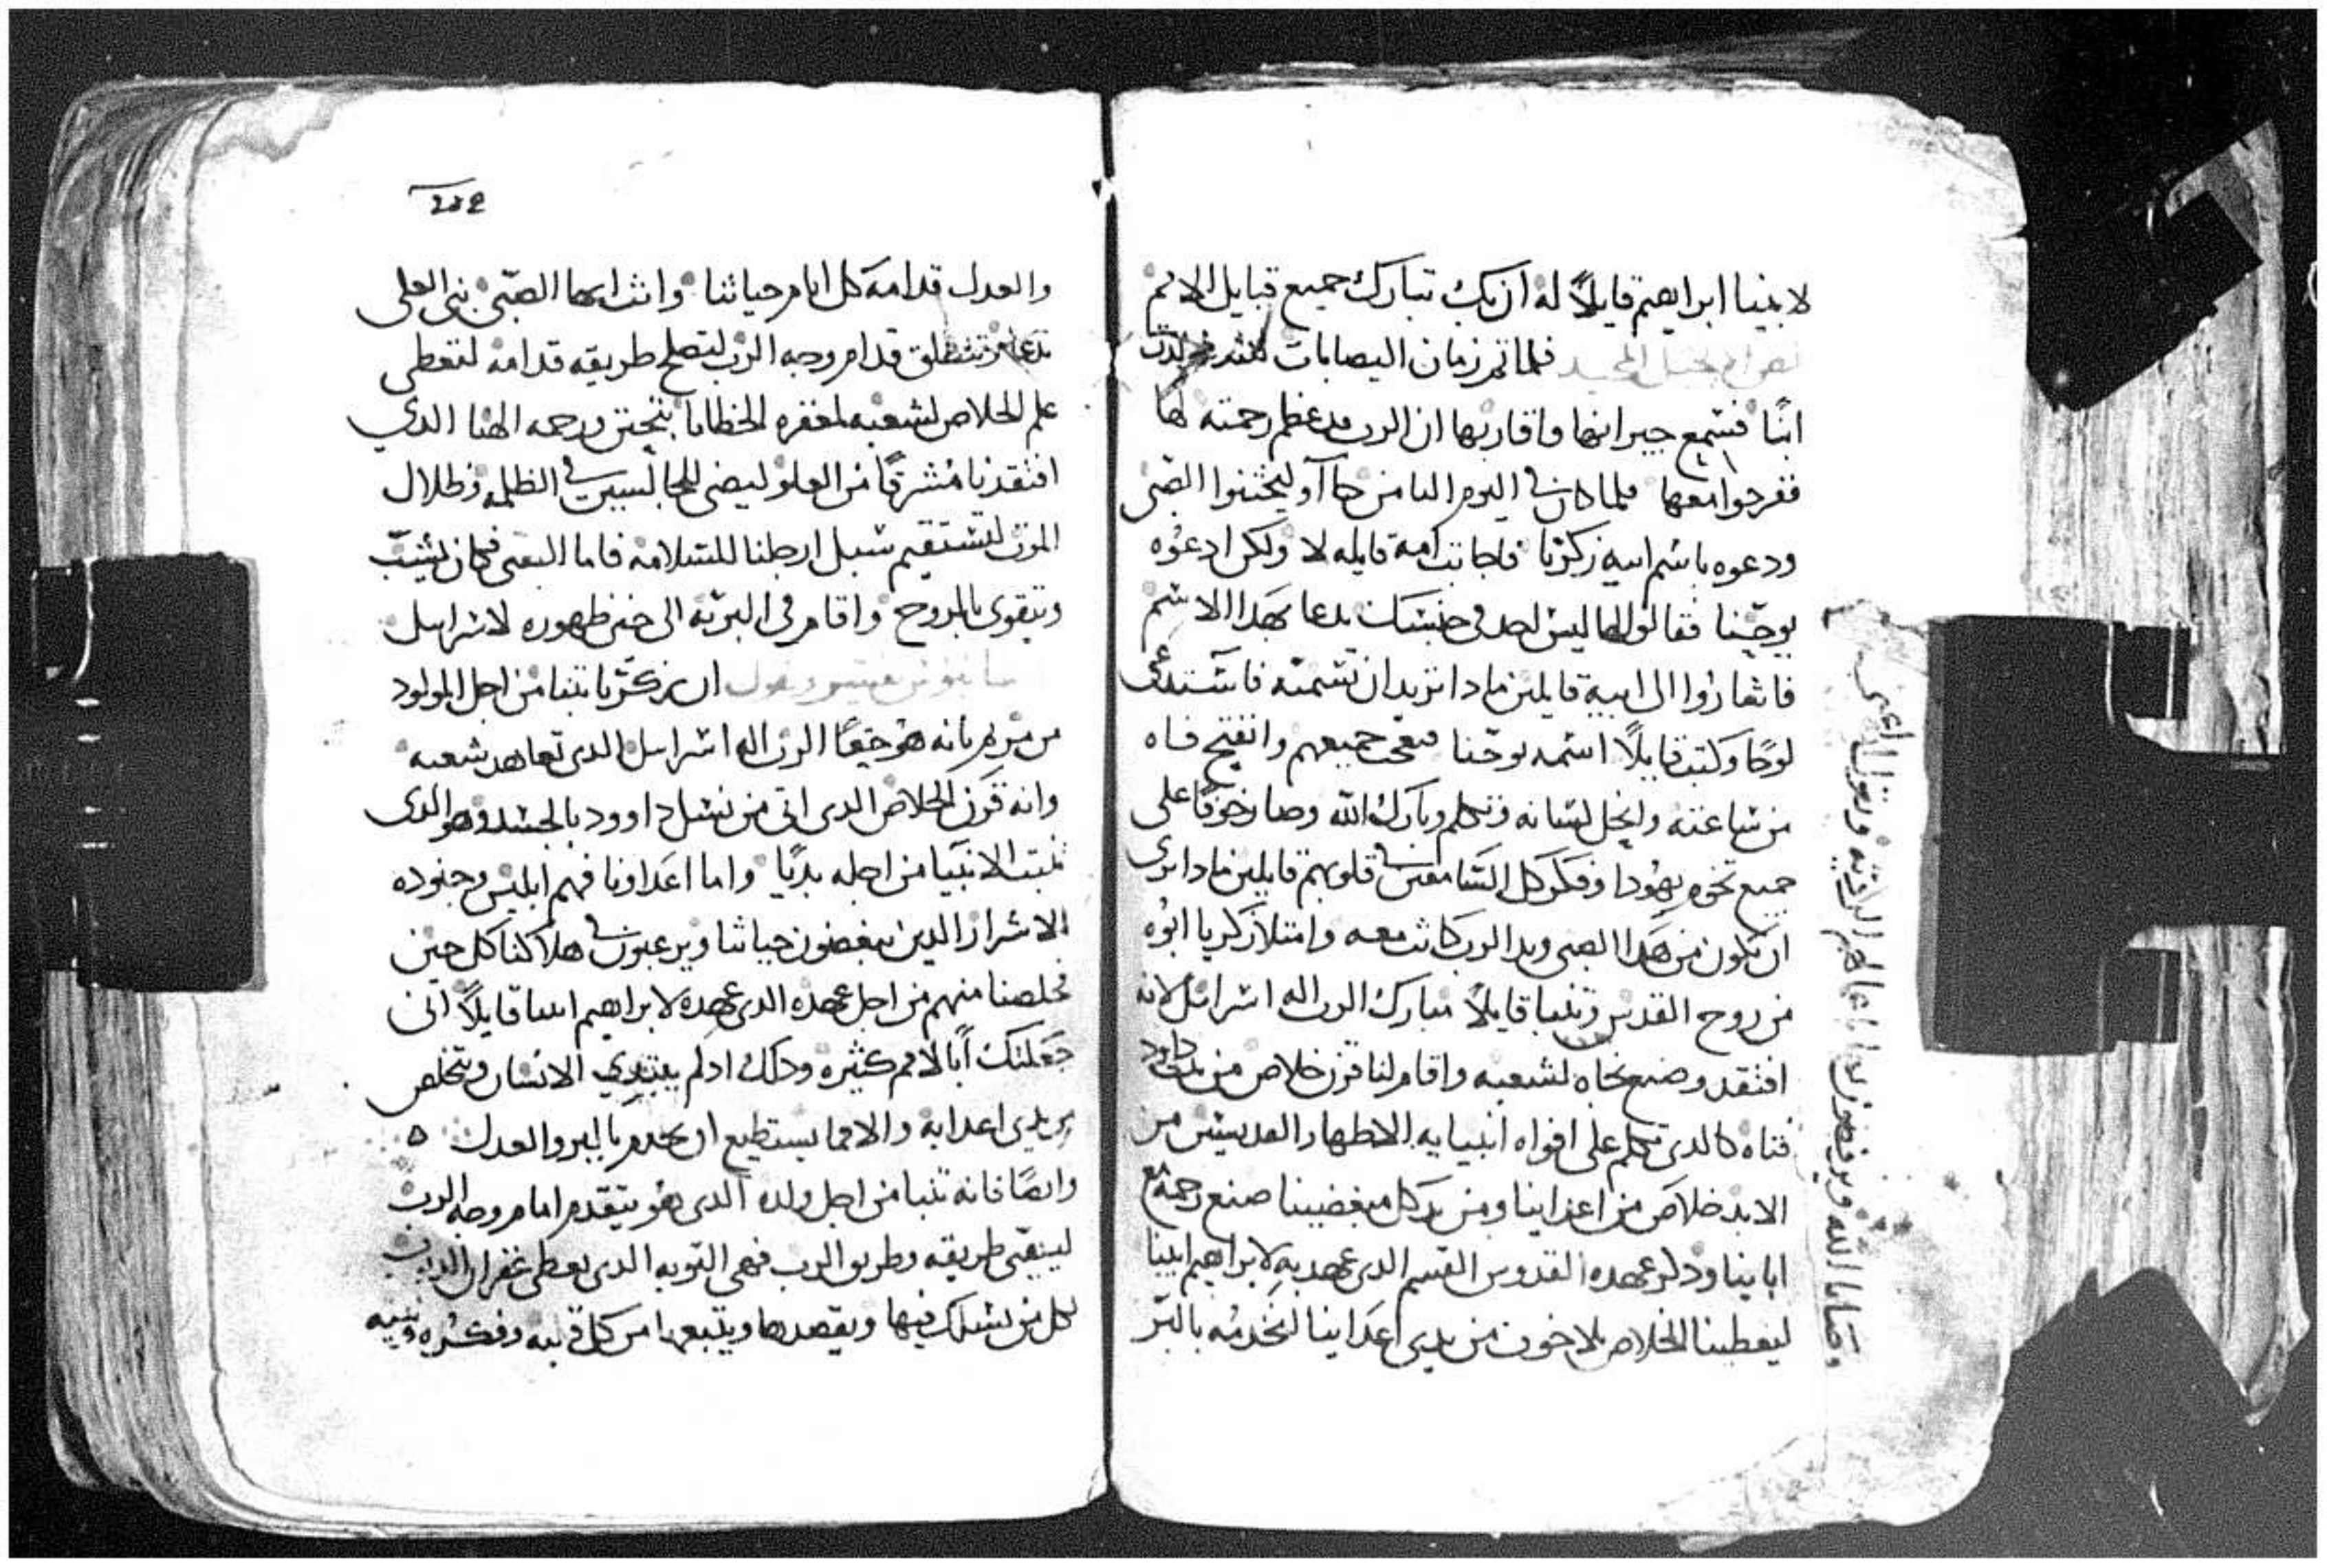 لابينا ابراهيم قايلاً له ان بك تبارك جميع قبايل الامم
نص الانجيل المجيد فلما تم زمان اليصابات لتلد فولدت
ابنًا فسمع جيرانها واقاربها ان الرب قد عظم رحمته لها
ففرحوا معها فلما كان في اليوم الثامن جاآو ليختنوا الصبي
ودعوه باسم ابيه زكريا فاجابت امه قايله لا ولكن ادعوه
يوحنا فقالوا لها ليس احد في جنسك يدعا بهدا الاسم
فاشاروا الى ابيه قايلين مادا تريد ان تسميه فاستدعى
لوحًا وكتب قايلاً اسمه يوحنا فتعجب جميعهم وانفتح فاه
من ساعته وانحل لسانه وتكلم وبارك الله وصار خوفًا على
جميع تخوم يهودا وفكر كل السامعين في قلوبهم قايلين مادا ترى
ان يكون من هدا الصبي ويد الرب كانت معه وامتلا زكريا ابوه
من روح القدس وتنبا قايلاً مبارك الرب اله اسراييل لانه
افتقد وصنع نجاه لشعبه واقام لنا قرن خلاص من بيت داود
فتاه كالدي تكلم على افواه انبيايه الاطهار القديسين من
الابد خلاص من اعداينا ومن يد كل مبغضينا صنع رحمه مع
اباينا ودكر عهده القدوس القسم الدي عهد به لابراهيم ابينا
ليعطينا الخلاص بلا خوف من يدي اعداينا لنخدمه بالبر
وصايا الله ويرفضون

والعدل قدامه كل ايام حياتنا وانت ايها الصبي نبي العلي
تدعا وتنطلق قدام وجه الرب لتصلح طريقه قدامه لتعطي
علم الخلاص لشعبه لمغفره الخطايا بتحنن ورحمه الهنا الدي
افتقدنا مشرقًا من العلو ليضي للجالسين في الظلمه وظلال
الموت لتستقيم سبل ارجلنا للسلامه فاما الصبي فكان يشب
ويتقوى بالروح واقام في البريه الى حين ظهوره لاسراييل
يفسر ويقول ان زكريا تنبا من اجل المولود
من مريم بانه هو حقًا الرب اله اسراييل الدي تعاهد شعبه
وانه قرن الخلاص الدي اتى من نسل داوود بالجسد وهو الدي
تنبت الانبيا من اجله بديًا واما اعداونا فهم ابليس وجنوده
الاشرار الدين يبغضون حياتنا ويرغبون في هلاكنا كل حين
فخلصنا منهم من اجل عهده الدي عهده لابراهيم ابينا قايلاً انى
جعلتك أبًا لامم كثيره ودلك ادلم يفتدي الانسان ويتخلص
من يدي اعدايه والا فما يستطيع ان يخدم بالبر والعدل ه
وايضًا فانه تنبا من اجل ولده الدي هو يتقدم امام وجه الرب
لينقي طريقه وطريق الرب فهي التوبه الدي تعطي غفران الدنوب
لكل من يسلك فيها ويقصدها ويتبعها من كل قلبه وفكره ونيته